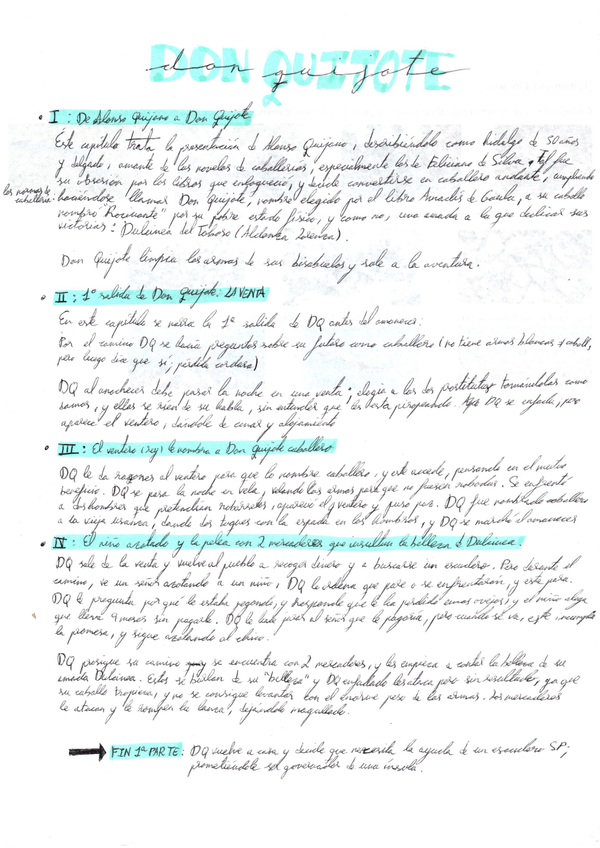 DON QUIJOTE
don quijote
• I : De Alonso Quijano a Don Quijote
Este capítulo trata la presentación de Alonso Quijano, describiéndole como hidalgo de 50 años
y delgado, amante de las novelas de caballerías, especialmente las de Feliciano de Silva. Tal fue
su obsesión por los libros que enloqueció, y decide convertirse en caballero andante, cumpliendo
las normas de caballería.
haciéndose llamar Don Quijote, nombre elegido por el libro Amadís de Gaula, a su caballo
nombró "Rocinante" por su pobre estado físico, y como no, una amada a la que dedicar sus
victorias: Dulcinea del Toboso (Aldonza Lorenzo).
Don Quijote limpia las armas de sus bisabuelos y sale a la aventura.
• II : 1ª salida de Don Quijote: LA VENTA
En este capítulo se narra la 1ª salida de DQ antes del amanecer.
Por el camino DQ se hacía preguntas sobre su futuro como caballero (no tiene armas blancas
pero luego dice que sí, pérdida cordura)
DQ al anochecer debe pasar la noche en una venta: elogia a las dos prostitutas tomándolas como
damas, y ellas se ríen de su habla, sin entender que las está piropeando. DQ se enfada, pero
aparece el ventero, dándole de cenar y alojamiento
• III : El ventero (rey) le nombra a Don Quijote caballero
DQ le da razones al ventero para que lo nombre caballero, y este accede, pensando en el mutuo
beneficio. DQ se pasa la noche en vela, velando las armas para que no fuesen robadas. Se enfrentó
a dos hombres que pretendían aparece el ventero y puso paz. DQ fue nombrado caballero
a la vieja usanza, dando dos toques con la espada en los hombros, y DQ se marchó al amanecer
• IV : El niño azotado y la pelea con 2 mercaderes que insultan la belleza d Dulcinea.
DQ sale de la venta y vuelve al pueblo a recoger dinero y a buscarse un escudero. Pero durante el
camino, ve un señor azotando a un niño, DQ le ordena que pare o se enfrentarían, y este para.
DQ le pregunta por qué le estaba pegando, y responde que le ha perdido unas ovejas, y el niño alega
que lleva 9 meses sin pagarle. DQ le hace jurar al señor que le pagaría, pero cuando se va, este incumple
la promesa, y sigue azotando al chico.
DQ prosigue su camino se encuentra con 2 mercaderes, y les empieza a contar la belleza de su
amada Dulcinea. Estos se burlan de su "belleza" y DQ enfadado les ataca pero sin resultado, ya que
su caballo tropieza, y no se consigue levantar con el enorme peso de las armas. Los mercaderes
le atacan y le rompen la lanza, dejándole magullado.
FIN 1ª PARTE: DQ vuelve a casa y decide que necesita la ayuda de un escudero SP;
prometiéndole ser gobernador de una ínsula.